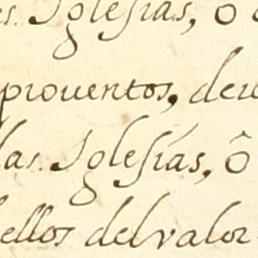 s. Iglesias, ô
prouentos, deu
las. Iglesias, ô
ellos del valor